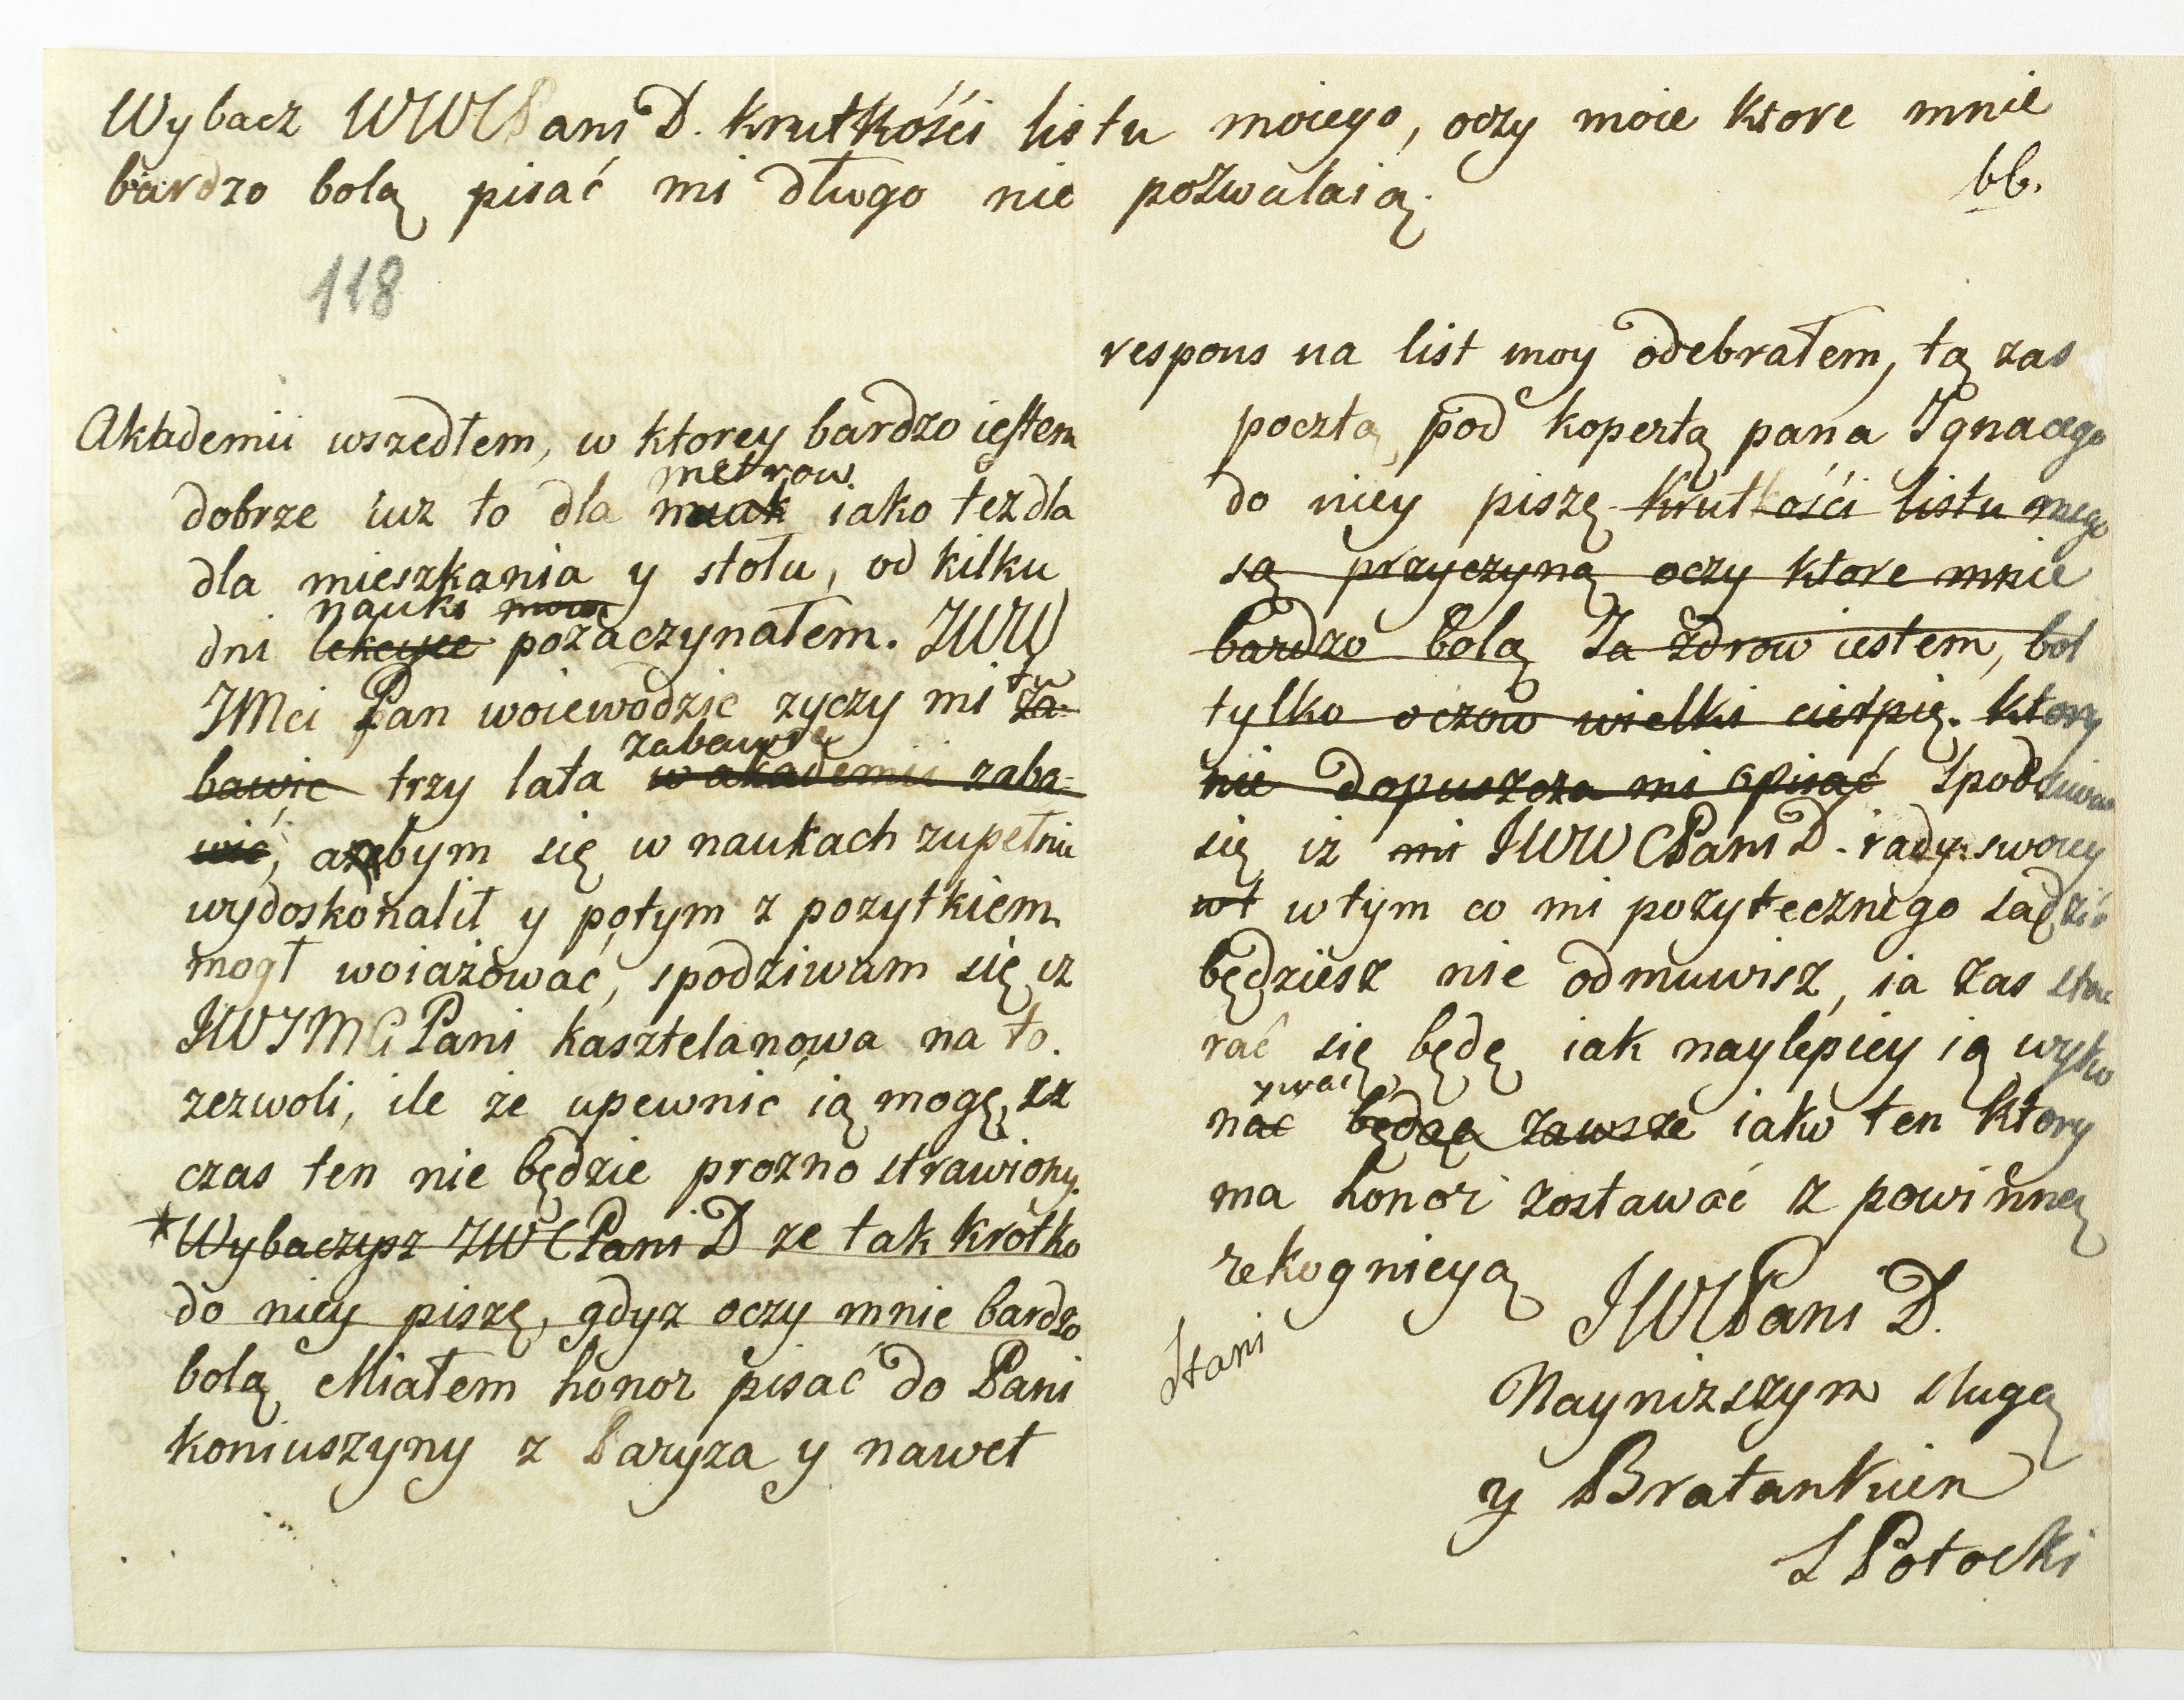 Wybacz WWCPani D. krutkości listu moiego, oczy moie ktore mnie
bardzo bolą pisać mi długo nie pozwalaią.
66.
118
Akademii wszedłem, w ktorey bardzo iestem
metrow.
dobrze iuz to dla nauk iako tez dla
dla mieszkania y stołu, od kilku
nauki moie
dni lekcyie pozaczynałem. JWW
JMci Pan woiewodzic zyczy mi za-
tu
zabawić
bawic trzy lata w akademii zaba-
wić, azebym się w naukach zupełnie
wydoskonalił y potym z pozytkiem
mogł woiażować, spodziwam się iz
JWJMCi Pani kasztelanowa na to.
zezwoli, ile że upewnic ią mogę, zz
czas ten nie będzie prozno strawiony.
* Wybaczysz JWCPani D ze tak krotko
do niey piszę, gdyz oczy mnie bardzo
bolą Miałem honor pisać do Pani
koniuszyny z Paryza y nawet
respons na list moy odebrałem, tą zas
pocztą, pod kopertą pana Ignacego
do niey piszę krutkości listu mego
są przyczyną oczy ktore mnie
bardzo bolą Ja zdrow iestem, bol
tylko oczow wielki cierpię. ktory
nie dopuszcza mi opisać spodziwam
się iz mi JWWCPani D. rady swoiey
wt w tym co mi pozytecznego sądzić
będziesz nie odmuwisz, ia zas sta
rać się będę iak naylepiey ią wyko
ywać
nac będąc zawsze iako ten ktory
ma honor zostawać z powinną
rekognicyą
JWCPani D.
Stani
Nayniższym sługą
y Bratankiem
S Potocki